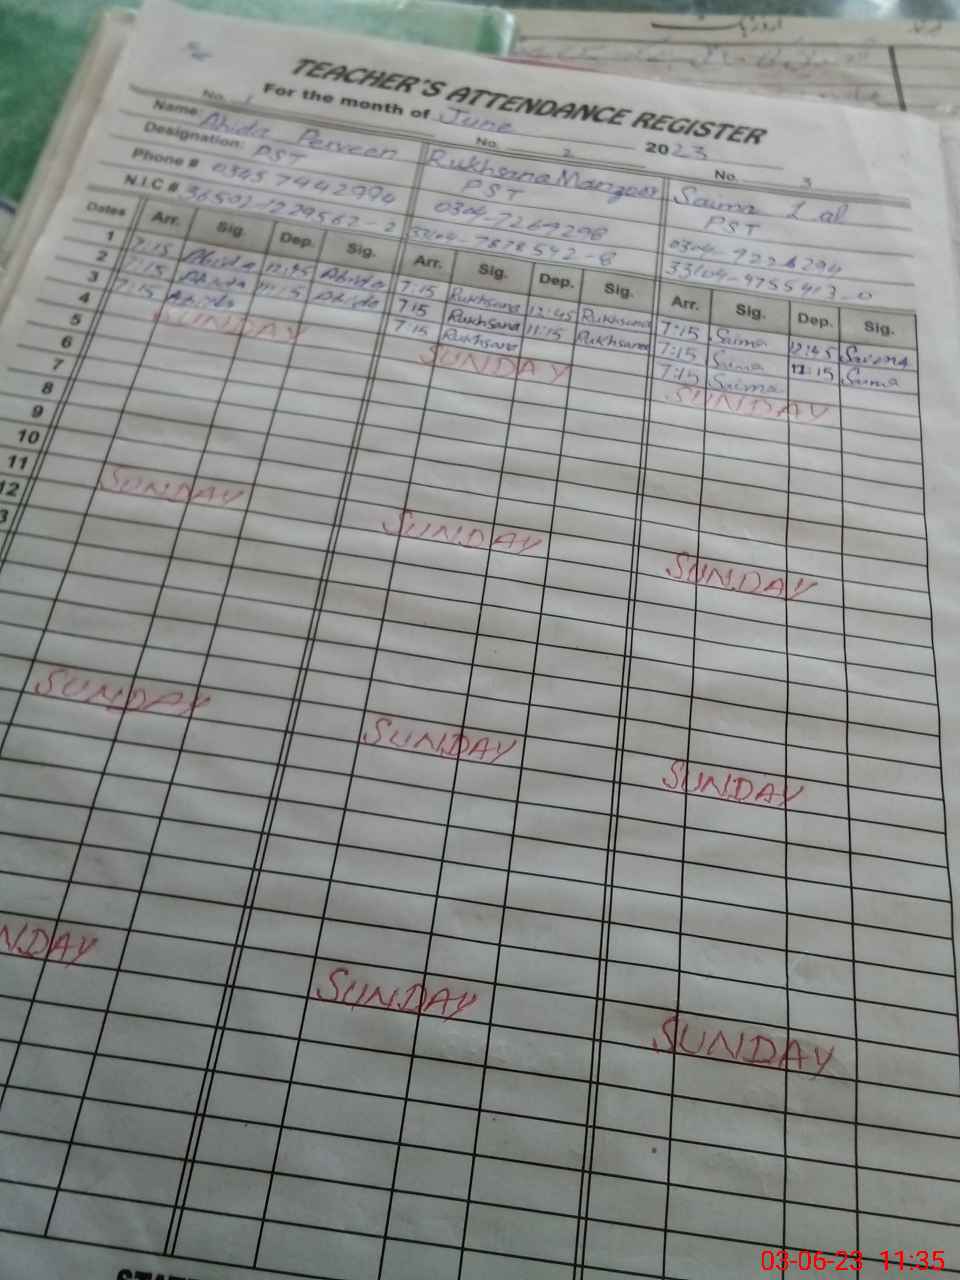 TEACHER'S ATTENDANCE REGISTER
For the month of June 2023
No. 1 No. 2 No. 3
Name: Abida Perveen Rukhsana Manzoor Saima
Designation: PST PST PST
Phone # 0345 7442994
N.I.C #
Dates Arr. Sig. Dep. Sig. Arr. Sig. Dep. Sig. Arr. Sig. Dep. Sig.
1 7:15 Abida 12:45 Abida 7:15 Rukhsana 12:45 Rukhsana 7:15 Saima 12:45 Saima
2 7:15 Abida 11:15 Abida 7:15 Rukhsana 11:15 Rukhsana 7:15 Saima 11:15 Saima
3 7:15 Abida 7:15 Rukhsana 7:15 Saima
4 SUNDAY SUNDAY SUNDAY
5
6
7
8
9
10
11 SUNDAY SUNDAY SUNDAY
12
3
SUNDAY SUNDAY SUNDAY
NDAY SUNDAY SUNDAY
03-06-23 11:35